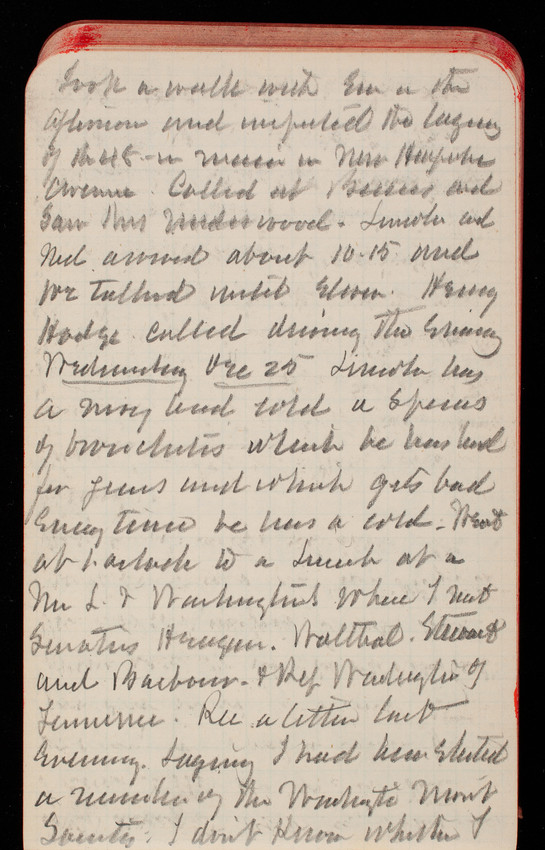 Took a walk with Em in the
afternoon and inspected the laying
of the 48 in main in New Hampshire
Avenue. Called at and
Saw Mrs Underwood. Lincoln and
Ned arrived about 10.15 and
we talked until Eleven. Henry
Hodge called during the Evening
Wednesday Dec 25 Lincoln has
a very bad cold a Species
of bronchitis which he has had
for years and which gets bad
Every time he has a cold. Went
at 1 oclock to a Lunch at a
Mr L. Washington's where I met
Senators Hampton. Walthal. Stewart
and Barbour. & Rep Washington of
Tennessee. Rec a letter last
Evening. Saying I had been Elected
a member of the Washington Mont
Society. I don't Know whether I